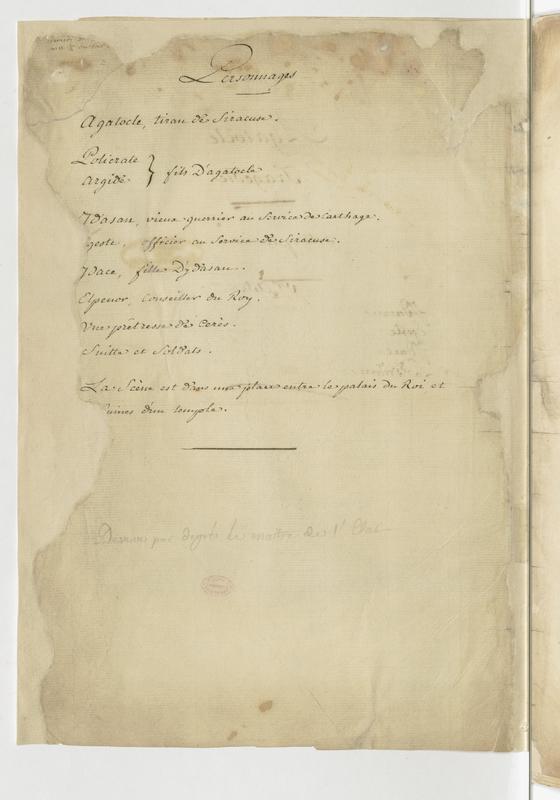 Personnages
Agatocle, tiran de Siracuse.
Policrate
argide } fils D'agatocle
Ydasan, vieux guerrier au service de Carthage.
Egeste, officier au service de Siracuse.
Ydace, fille D'ydasan.
Elpenor, Conseiller du Roy.
Une prêtresse de cerès.
Suitte et Soldats.
La Scène est dans une place entre le palais du Roi et
ruines d'un temple.
Devenu par degrés le maître de l'Etat